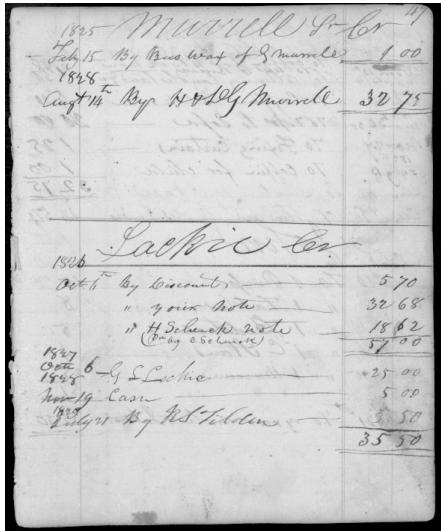 47
1825 Murrell Sr Cr
Feby 15 By Bees wax of G murrell 1 00
1828
Augt 14th By H & D G Murrell 32 75
Lackie Cr.
1826
Oct 6th By Discount 5 70
" your Note 32 68
" H Schenck note 18 62
by C Schenck
57 00
1827
Octo 6 G S Lackie 25 00
1828
Nov 19 Cash 5 00
July 21 By R S Tilden 5 50
35 50